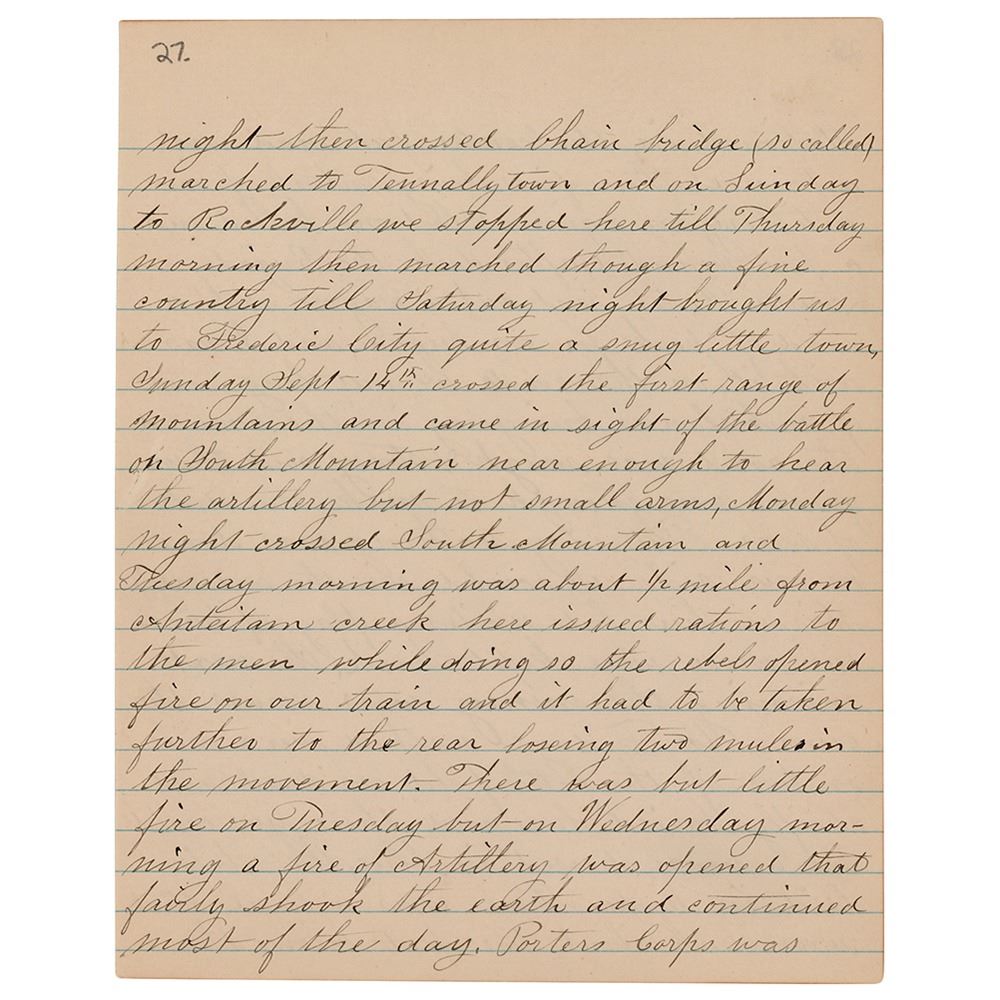 27.
night then crossed Chain bridge (so called)
marched to Tennallytown and on Sunday
to Rockville we stopped here till Thursday
morning then marched though a fine
country till Saturday night brought us
to Frederic City quite a snug little town,
Sunday Sept 14th crossed the first range of
mountains and came in sight of the battle
on South Mountain near enough to hear
the artillery but not small arms, Monday
night crossed South Mountain and
Tuesday morning was about 1/2 mile from
Anteitam creek here issued rations to
the men while doing so the rebels opened
fire on our train and it had to be taken
further to the rear loseing two mules in
the movement. There was but little
fire on Tuesday but on Wednesday mor-
ning a fire of Artillery was opened that
fairly shook the earth and continued
most of the day. Porters Corps was